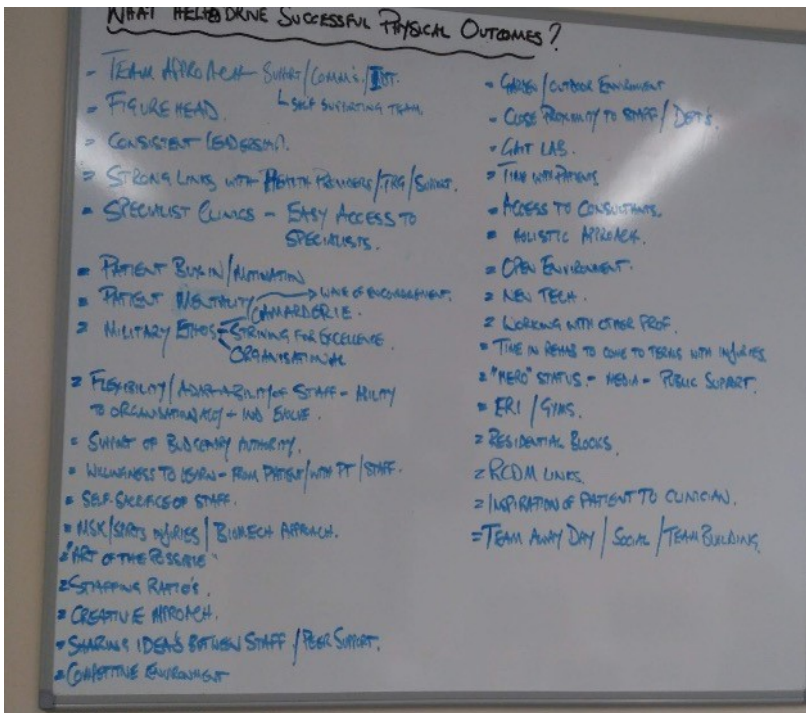 WHAT HELPS DRIVE SUCCESSFUL PHYSICAL OUTCOMES?
- TEAM APPROACH SUPPORT/COMM'S/IDT.
↳ SELF SUPPORTING TEAM.
- FIGUREHEAD.
- CONSISTENT LEADERSHIP.
- STRONG LINKS WITH HEALTH PROVIDERS/TRG/SUPPORT.
- SPECIALIST CLINICS - EASY ACCESS TO
SPECIALISTS.
- PATIENT BUY IN/MOTIVATION
- PATIENT MENTALITY → WAVE OF ENCOURAGEMENT.
/CAMARDERIE.
- MILITARY ETHOS - STRIVING FOR EXCELLENCE
ORGANISATIONAL
- FLEXIBILITY/ADAPTABILITY OF STAFF - ABILITY
TO ORGANISATIONALLY + IND EVOLVE.
- SUPPORT OF BUDGETARY AUTHORITY.
- WILLINGNESS TO LEARN - FROM PATIENT/WITH PT/STAFF.
- SELF-SACRIFICE OF STAFF.
- MSK/SPORTS INJURIES/BIOMECH APPROACH.
- "ART OF THE POSSIBLE"
- STAFFING RATIO'S.
- CREATIVE APPROACH.
- SHARING IDEA'S BETWEEN STAFF/PEER SUPPORT.
- COMPETITIVE ENVIRONMENT
- GARDEN/OUTDOOR ENVIRONMENT
- CLOSE PROXIMITY TO STAFF/DEPT'S.
- GAIT LAB.
- TIME WITH PATIENTS.
- ACCESS TO CONSULTANTS.
- HOLISTIC APPROACH.
- OPEN ENVIRONMENT.
- NEW TECH.
- WORKING WITH OTHER PROF.
- TIME IN REHAB TO COME TO TERMS WITH INJURIES.
- "HERO" STATUS. - MEDIA - PUBLIC SUPPORT.
- ERI/GYMS.
- RESIDENTIAL BLOCKS.
- RCDM LINKS.
- INSPIRATION OF PATIENT TO CLINICIAN.
- TEAM AWAY DAY/SOCIAL/TEAM BUILDING.